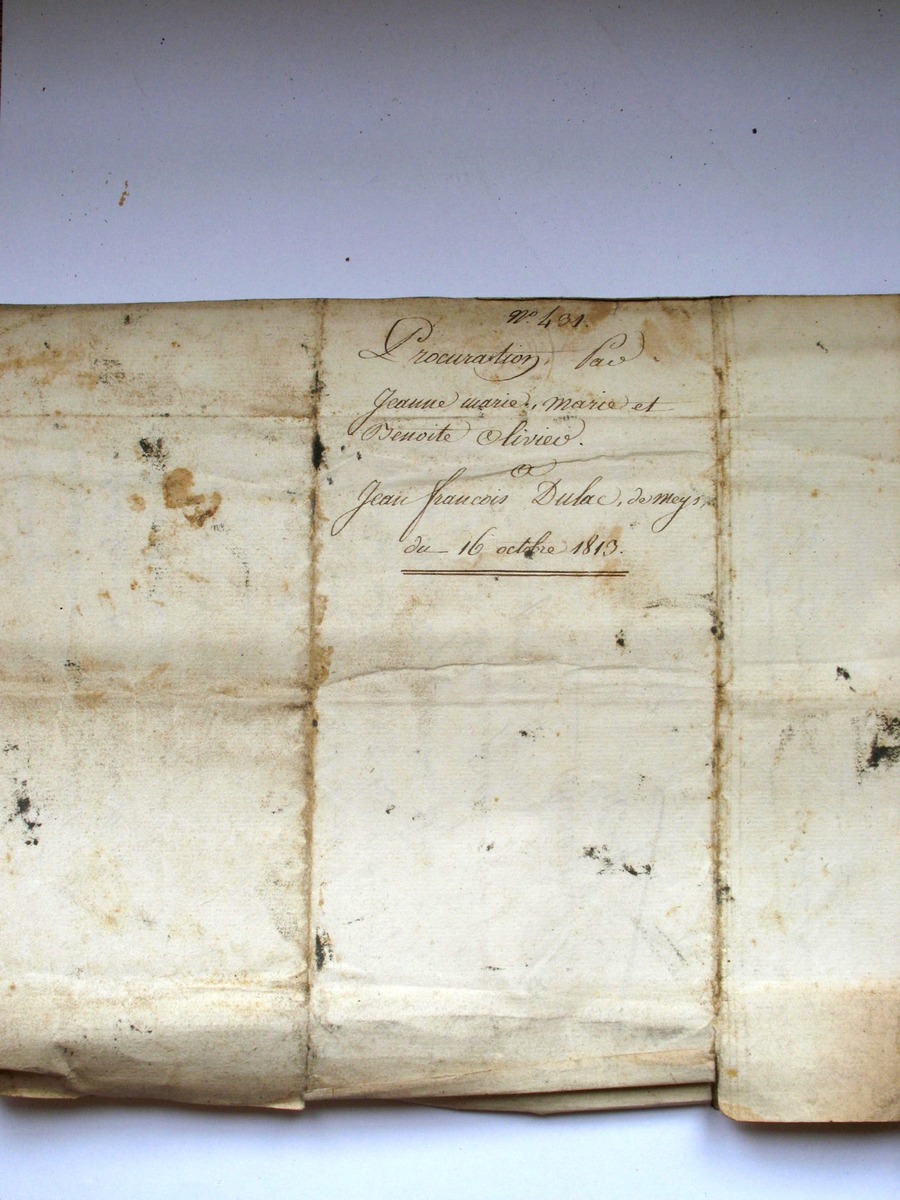 n.o 431.
Procuration. Par
Jeanne marie, marie et
Benoite Olivier.
a
Jean françois Dulac, de meys,
du 16 octobre 1813.